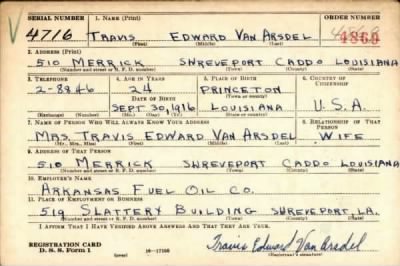 SERIAL NUMBER 1. Name (Print) ORDER NUMBER
4716 TRAVIS EDWARD VAN ARSDEL 4860
(First) (Middle) (Last)
2. Address (Print)
510 MERRICK SHREVEPORT CADDO LOUISIANA
(Number and street or R. F. D. number) (Town) (County) (State)
3. Telephone 4. Age in Years 5. Place of Birth 6. Country of Citizenship
2-8846 24 PRINCETON
Date of Birth (Town or county)
SEPT. 30, 1916 LOUISIANA U.S.A.
(Mo.) (Day) (Yr.) (State or country)
7. Name of Person Who Will Always Know Your Address 8. Relationship of That Person
MRS. TRAVIS EDWARD VAN ARSDEL WIFE
(Mr., Mrs., Miss) (First) (Middle) (Last)
9. Address of That Person
510 MERRICK SHREVEPORT CADDO LOUISIANA
(Number and street or R. F. D. number) (Town) (County) (State)
10. Employer's Name
ARKANSAS FUEL OIL CO.
11. Place of Employment or Business
519 SLATTERY BUILDING SHREVEPORT, LA.
(Number and street or R. F. D. number) (Town) (County) (State)
I Affirm That I Have Verified Above Answers and That They Are True.
REGISTRATION CARD
D. S. S. Form 1 16—17105 Travis Edward Van Arsdel
(Registrant's signature)